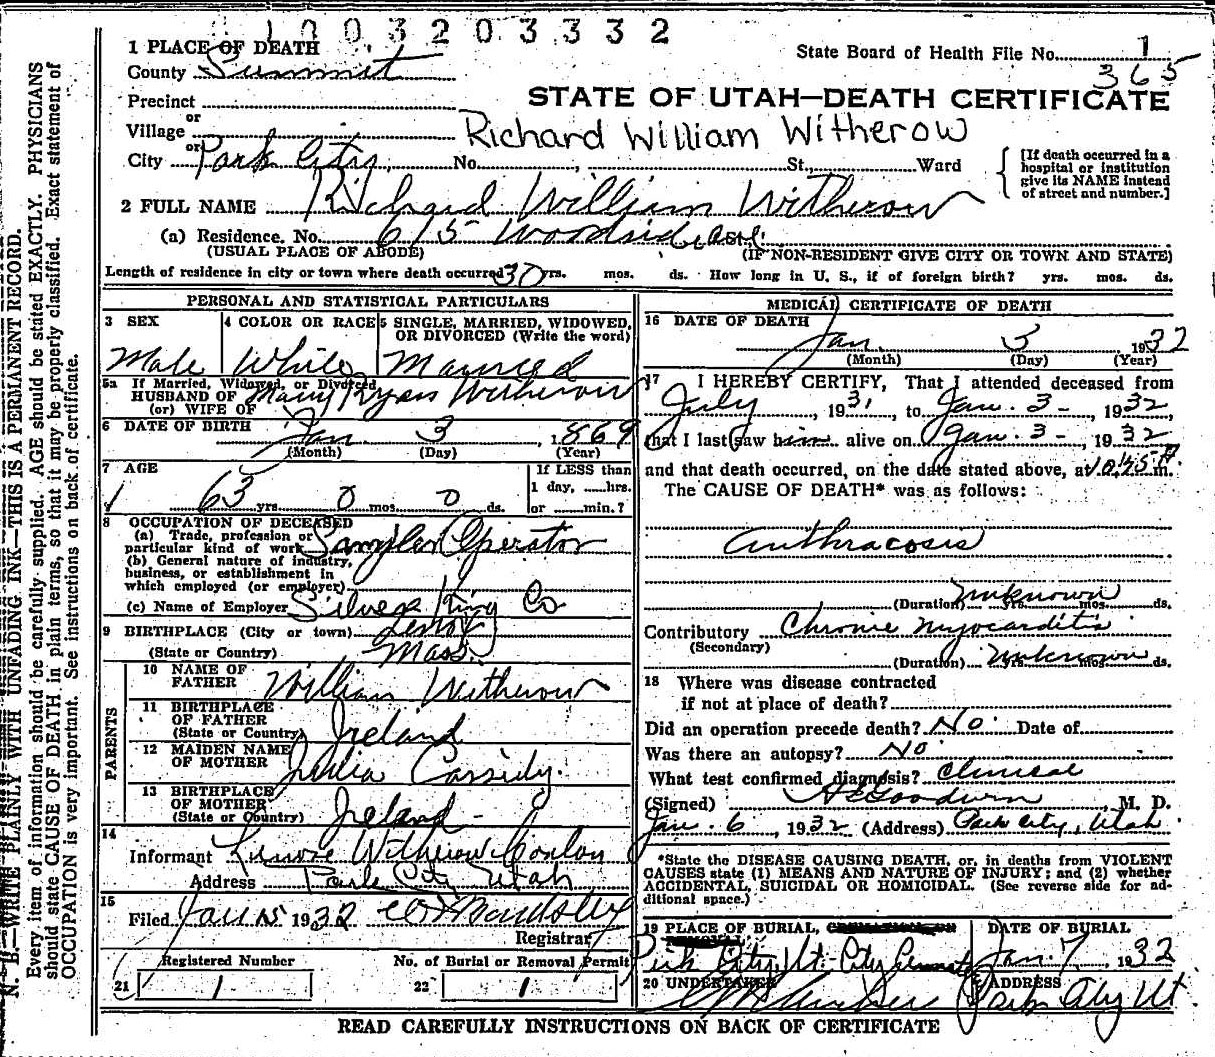 1003203332
1 PLACE OF DEATH
State Board of Health File No. 1
County Summit
365
Precinct
STATE OF UTAH—DEATH CERTIFICATE
or
Village
Richard William Witherow
or
City Park City, No. , St., Ward
[If death occurred in a hospital or institution give its NAME instead of street and number.]
2 FULL NAME Richard William Witherow
(a) Residence. No. 615 Woodside Ave.
(USUAL PLACE OF ABODE) (IF NON-RESIDENT GIVE CITY OR TOWN AND STATE)
Length of residence in city or town where death occurred 30 yrs. mos. ds. How long in U. S., if of foreign birth? yrs. mos. ds.
PERSONAL AND STATISTICAL PARTICULARS
3 SEX
Male
4 COLOR OR RACE
White
5 SINGLE, MARRIED, WIDOWED, OR DIVORCED (Write the word)
Married
5a If Married, Widowed, or Divorced
HUSBAND OF Mary Ryan Witherow
(or) WIFE OF
6 DATE OF BIRTH Jan 3, 1869
(Month) (Day) (Year)
7 AGE
63 yrs. 0 mos. 0 ds.
If LESS than
1 day, ......hrs.
or ......min.?
8 OCCUPATION OF DECEASED
(a) Trade, profession or
particular kind of work Sampler Operator
(b) General nature of industry,
business, or establishment in
which employed (or employer)
(c) Name of Employer Silver King Co
9 BIRTHPLACE (City or town) Lenox
(State or Country) Mass.
PARENTS
10 NAME OF FATHER William Witherow
11 BIRTHPLACE OF FATHER
(State or Country) Ireland
12 MAIDEN NAME OF MOTHER Julia Cassidy.
13 BIRTHPLACE OF MOTHER
(State or Country) Ireland
14
Informant Lenore Witherow Conlon
Address Park City Utah
15
Filed Jan 15 1932
Registrar
Registered Number
21 1
No. of Burial or Removal Permit
22 1
MEDICAL CERTIFICATE OF DEATH
16 DATE OF DEATH
Jan 3 1932
(Month) (Day) (Year)
17 I HEREBY CERTIFY, That I attended deceased from
July, 1931, to Jan. 3-, 1932,
that I last saw him alive on Jan. 3-, 1932
and that death occurred, on the date stated above, at 10:45 P.m.
The CAUSE OF DEATH* was as follows:
Anthracosis
(Duration) Unknown yrs. mos. ds.
Contributory Chronic Myocarditis
(Secondary)
(Duration) Unknown yrs. mos. ds.
18 Where was disease contracted
if not at place of death?
Did an operation precede death? No. Date of
Was there an autopsy? No.
What test confirmed diagnosis? Clinical
(Signed) Goodwin, M. D.
Jan. 6, 1932 (Address) Park City, Utah.
*State the DISEASE CAUSING DEATH, or, in deaths from VIOLENT
CAUSES state (1) MEANS AND NATURE OF INJURY; and (2) whether
ACCIDENTAL, SUICIDAL OR HOMICIDAL. (See reverse side for additional space.)
19 PLACE OF BURIAL,
Park City, Ut. City Cemetery
DATE OF BURIAL
Jan. 7 1932
20 UNDERTAKER
ADDRESS
Park City Ut.
READ CAREFULLY INSTRUCTIONS ON BACK OF CERTIFICATE
N. B.—WRITE PLAINLY WITH UNFADING INK—THIS IS A PERMANENT RECORD.
Every item of information should be carefully supplied. AGE should be stated EXACTLY. PHYSICIANS
should state CAUSE OF DEATH in plain terms, so that it may be properly classified. Exact statement of
OCCUPATION is very important. See instructions on back of certificate.